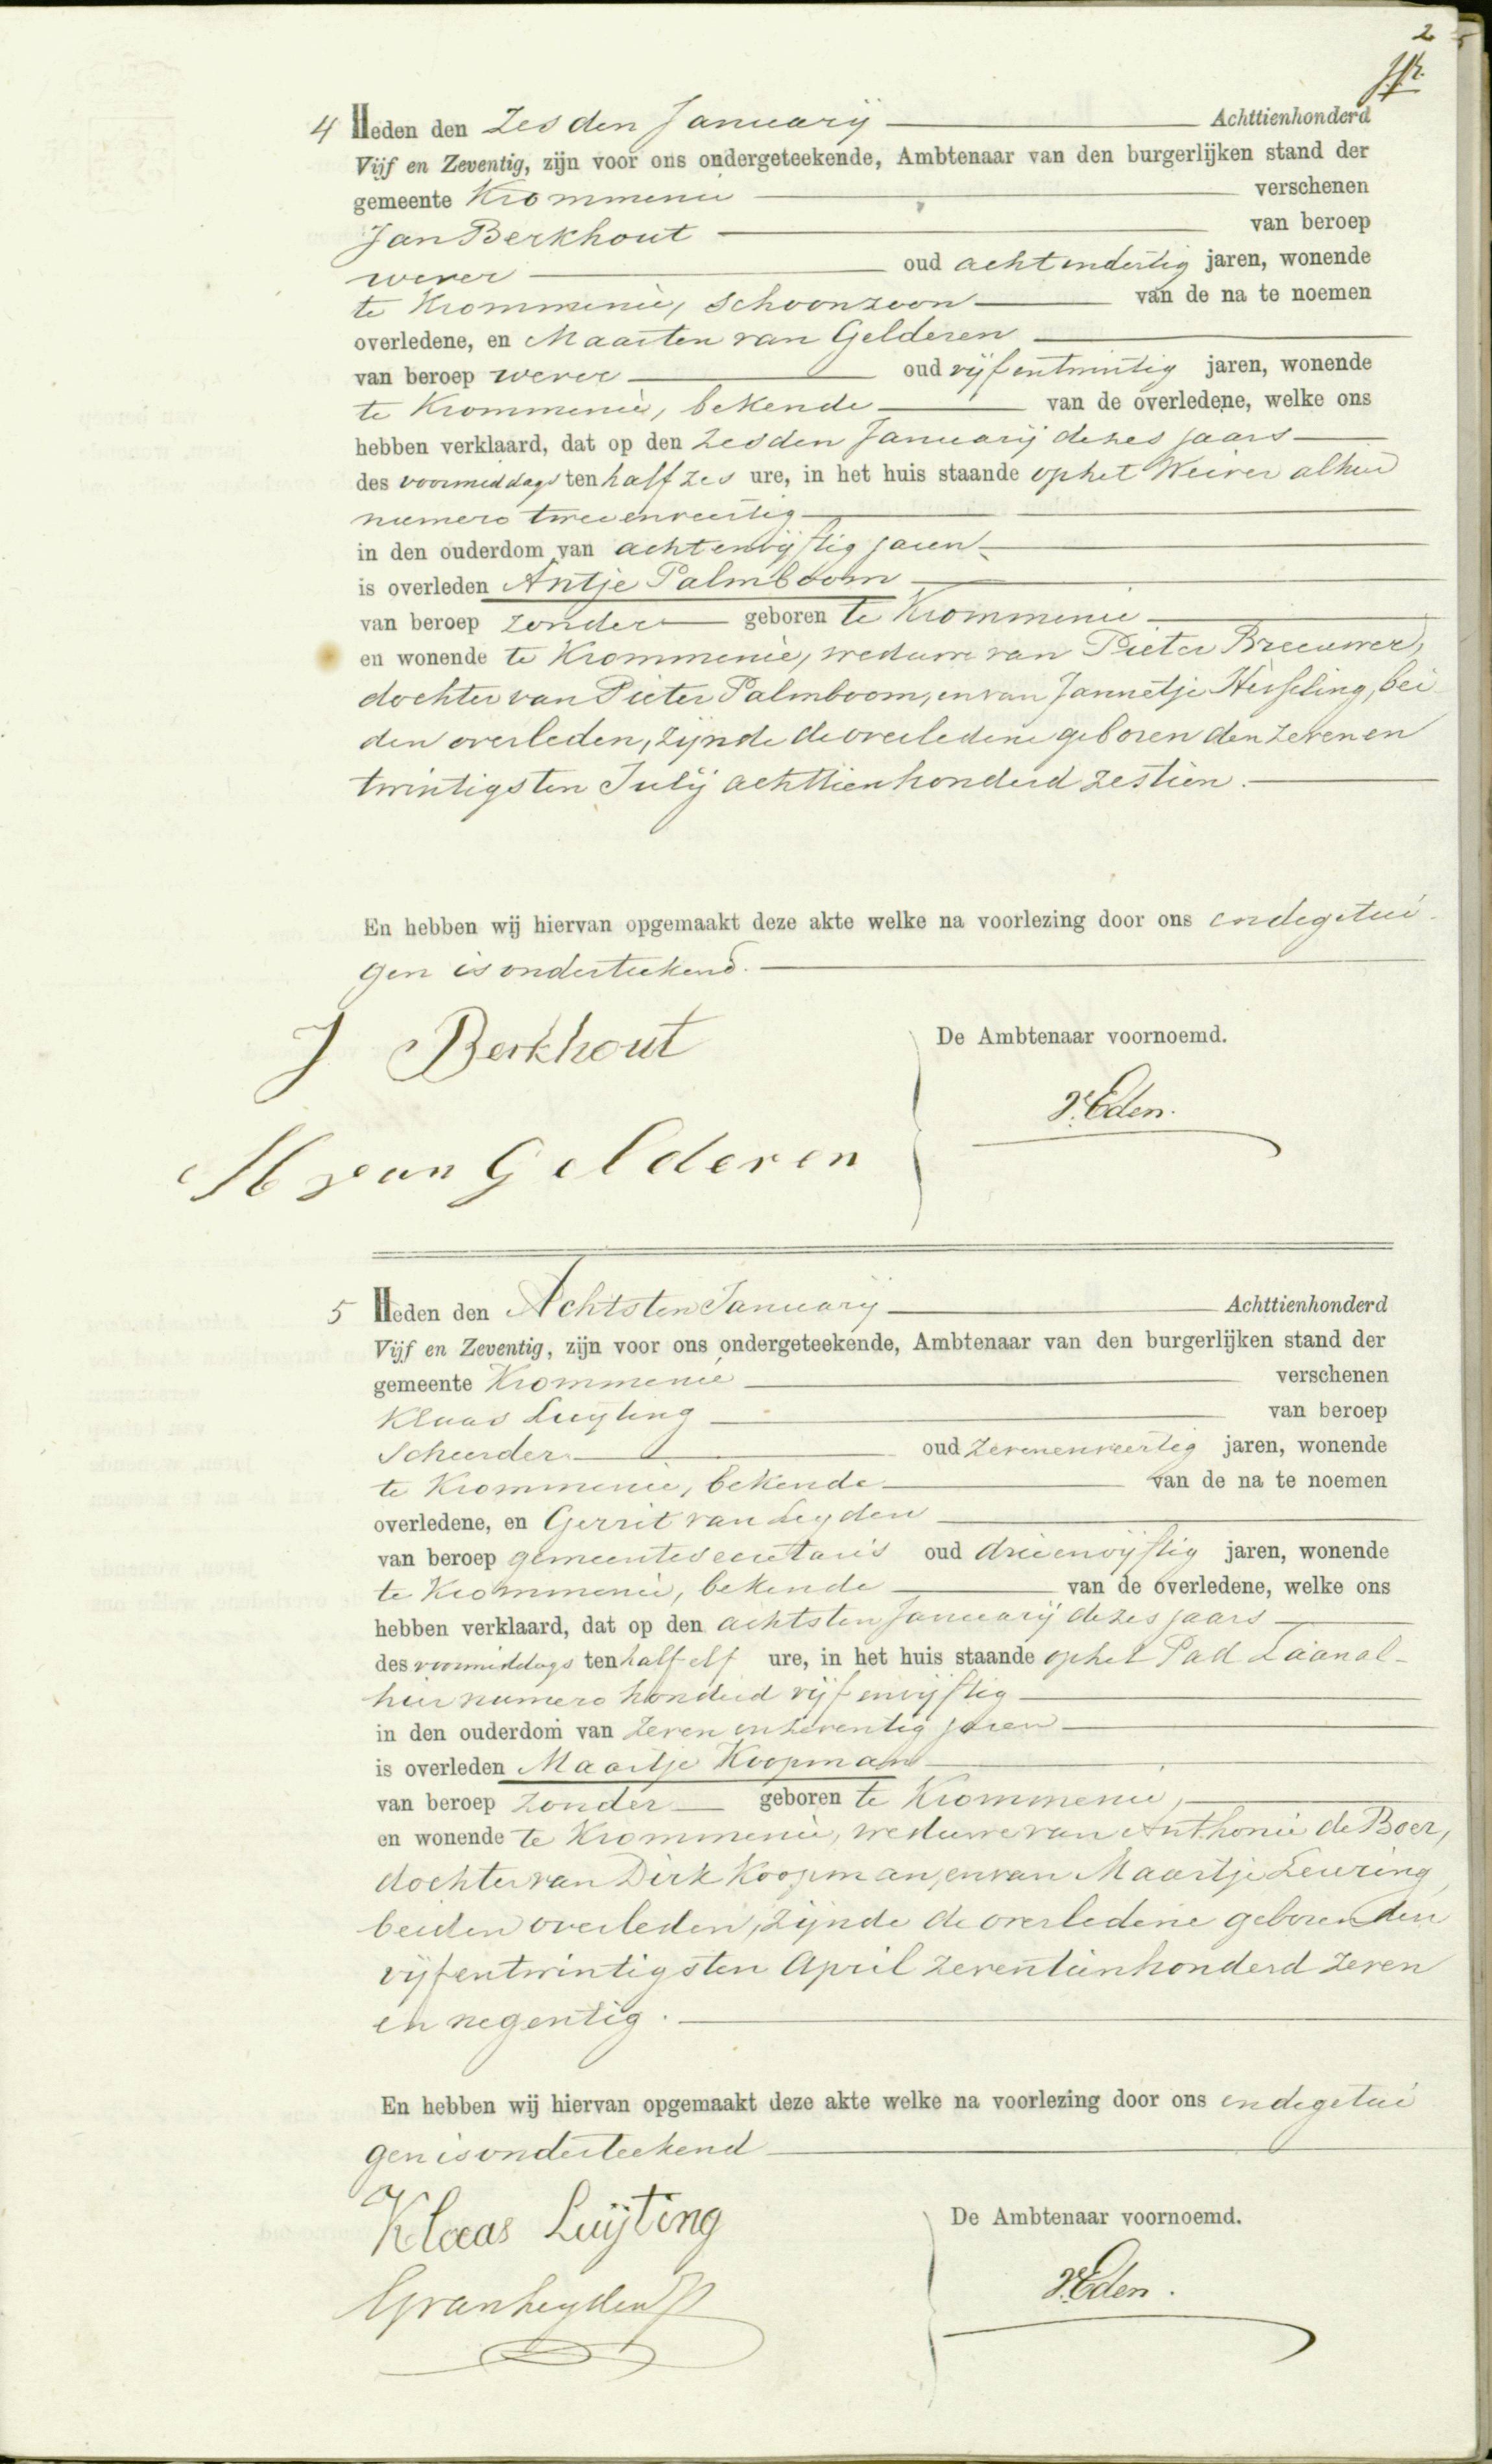 2
4 Heden den Zesden Januarij Achttienhonderd
Vijf en Zeventig, zijn voor ons ondergeteekende, Ambtenaar van den burgerlijken stand der
gemeente Krommenie verschenen
Jan Berkhout van beroep
wever oud achtendertig jaren, wonende
te Krommenie, schoonzoon van de na te noemen
overledene, en Maarten van Gelderen
van beroep wever oud vijfentwintig jaren, wonende
te Krommenie, bekende van de overledene, welke ons
hebben verklaard, dat op den zesden Januarij dezes jaars
des voormiddags ten half zes ure, in het huis staande op het Weiver alhier
numero tweeenveertig
in den ouderdom van achtenvijftig jaren
is overleden Antje Palmboom
van beroep zonder geboren te Krommenie
en wonende te Krommenie, weduwe van Pieter Breeuwer,
dochter van Pieter Palmboom, en van Jannetje Hesseling, bei
den overleden, zijnde de overledene geboren den zevenen
twintigsten Julij achttienhonderd zestien.
En hebben wij hiervan opgemaakt deze akte welke na voorlezing door ons en de getui-
gen is onderteekend.
J Berkhout
De Ambtenaar voornoemd.
Eden.
M van Gelderen
5 Heden den Achtsten Januarij Achttienhonderd
Vijf en Zeventig, zijn voor ons ondergeteekende, Ambtenaar van den burgerlijken stand der
gemeente Krommenie verschenen
Klaas Luyting van beroep
Scheerder oud zevenenveertig jaren, wonende
te Krommenie, bekende van de na te noemen
overledene, en Gerrit van Leyden
van beroep gemeentesecretaris oud drieenvijftig jaren, wonende
te Krommenie, bekende van de overledene, welke ons
hebben verklaard, dat op den achtsten Januarij dezes jaars
des voormiddags ten half elf ure, in het huis staande op het Pad Laan al-
hier numero honderd vijfenvijftig
in den ouderdom van zeven en zeventig jaren
is overleden Maartje Koopman
van beroep zonder geboren te Krommenie,
en wonende te Krommenie, weduwe van Anthonie de Boer,
dochter van Dirk Koopman, en van Maartje Leuring,
beiden overleden, zijnde de overledene geboren den
vijfentwintigsten April zeventienhonderd zeven
en negentig.
En hebben wij hiervan opgemaakt deze akte welke na voorlezing door ons en de getui
gen is onderteekend
Klaas Luijting
De Ambtenaar voornoemd.
G van Leyden
Eden.